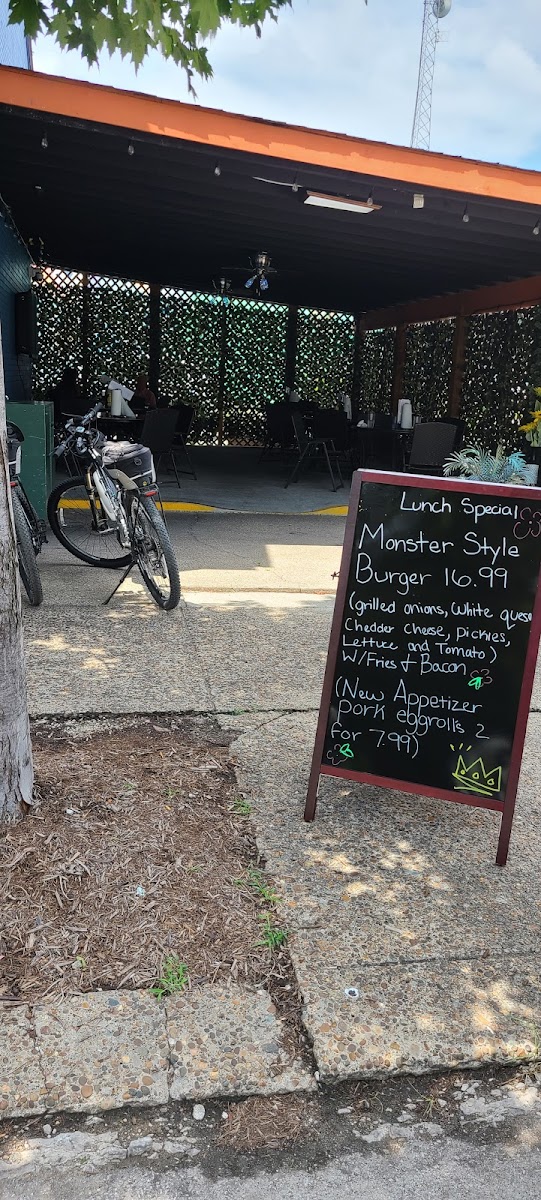 Lunch Special
Monster Style
Burger 16.99
(grilled onions, White queso
Chedder Cheese, pickles,
Lettuce and Tomato)
W/Fries & Bacon
(New Appetizer
pork eggrolls 2
for 7.99)